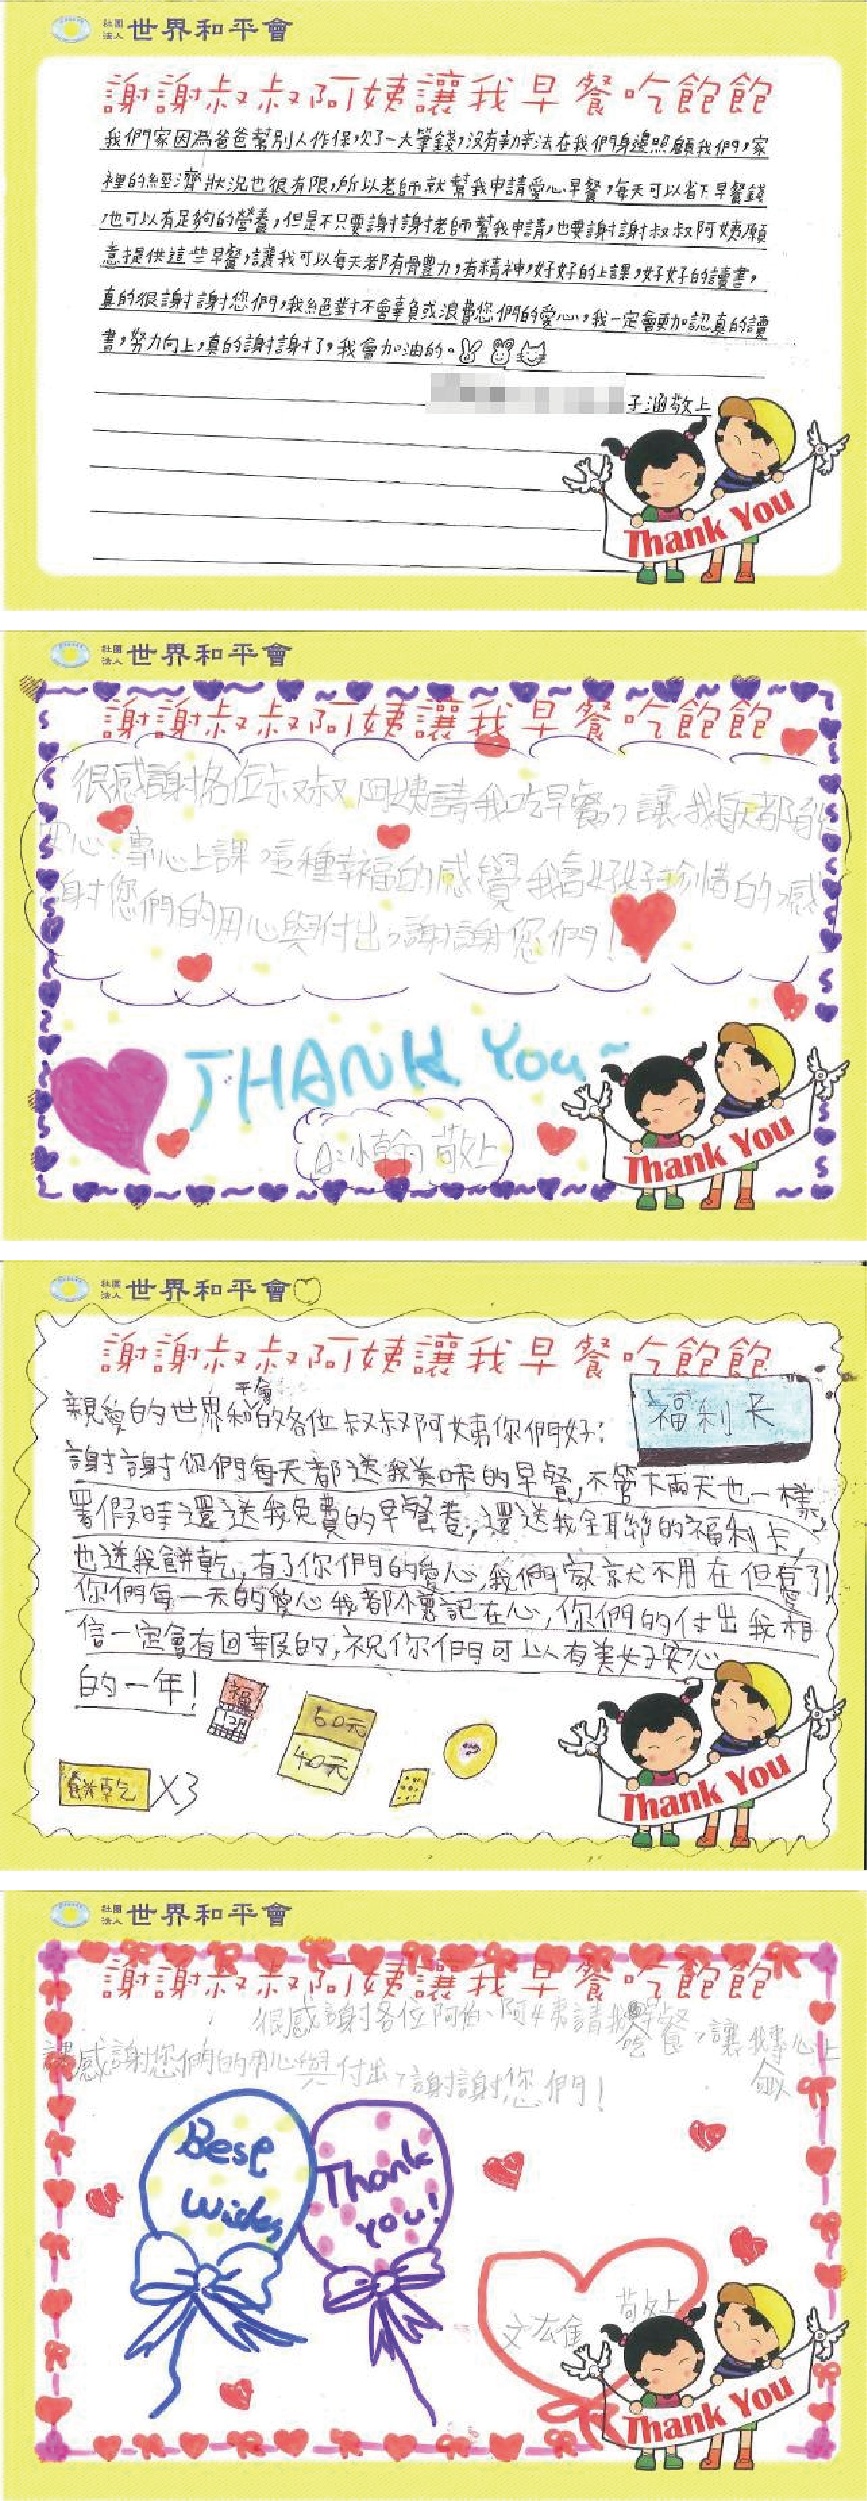 社團法人 世界和平會
謝謝叔叔阿姨讓我早餐吃飽飽
我們家因為爸爸幫別人作保,欠了一大筆錢,沒有辦法在我們身邊照顧我們,家
裡的經濟狀況也很有限,所以老師就幫我申請愛心早餐,每天可以省下早餐錢
,也可以有足夠的營養,但是不只要謝謝老師幫我申請,也要謝謝叔叔阿姨願
意提供這些早餐,讓我可以每天都有體力,有精神,好好的上課,好好的讀書,
真的很謝謝您們,我絕對不會辜負或浪費您們的愛心,我一定會更加認真的讀
書,努力向上,真的謝謝了,我會加油的。
子涵敬上
Thank You
社團法人 世界和平會
謝謝叔叔阿姨讓我早餐吃飽飽
很感謝各位叔叔阿姨請我吃早餐,讓我每天都能
安心、專心上課,這種幸福的感覺我會好好珍惜的,感
謝您們的用心與付出,謝謝您們!
THANK You~
敬上
Thank You
社團法人 世界和平會
謝謝叔叔阿姨讓我早餐吃飽飽
福利卡
親愛的世界和平會的各位叔叔阿姨你們好:
謝謝你們每天都送我美味的早餐,不管大雨天也一樣,
暑假時還送我免費的早餐卷,還送我全聯的福利卡,
也送我餅乾,有了你們的愛心,我們家就不用在但憂了!
你們每一天的愛心我都懷記在心,你們的付出我相
信一定會有回報的,祝你們可以有美好安心
的一年!
福
12月
60元
40元
餅乾 X3
Thank You
社團法人 世界和平會
謝謝叔叔阿姨讓我早餐吃飽飽
很感謝各位阿伯、阿姨請我吃早餐,讓我專心上
課感謝您們的用心與付出,謝謝您們!
Best Wishes
Thank you!
敬上
Thank You